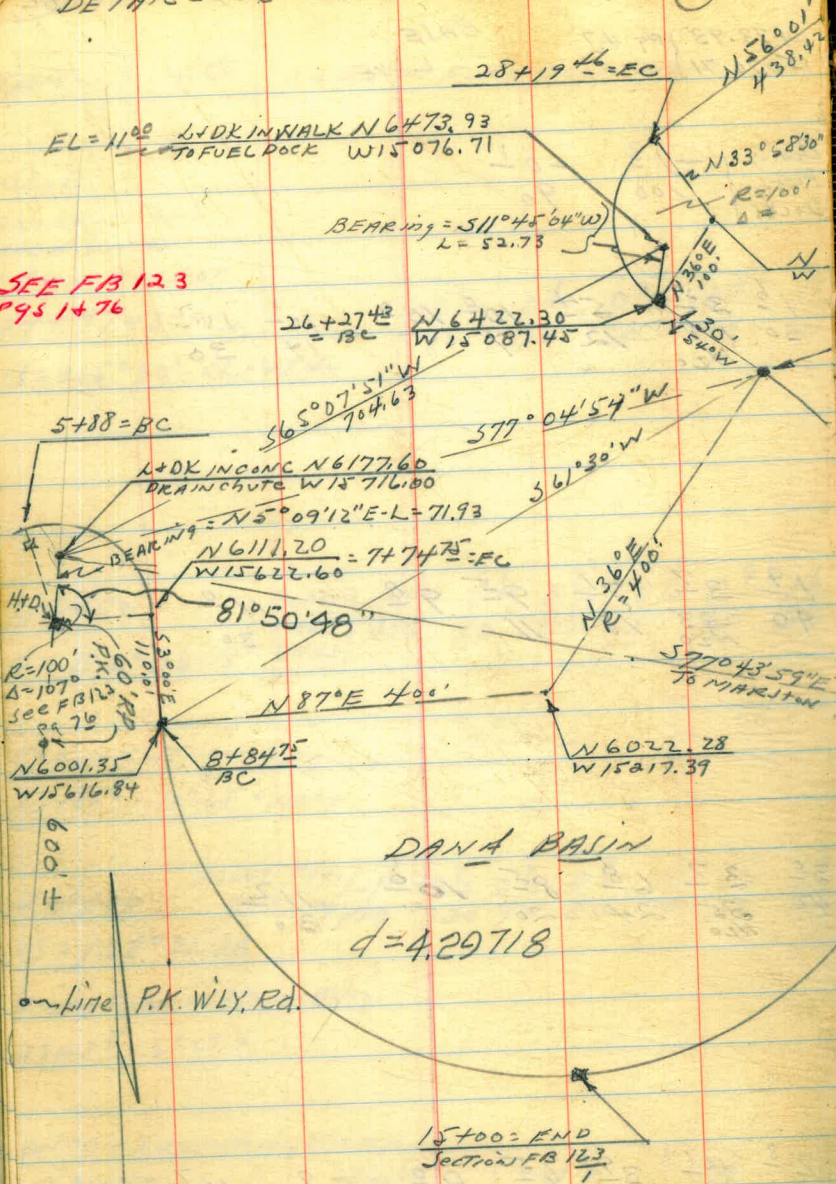 DETAIL
28+19 46 = EC
N 56° 01'
438.42
EL = 11 00
L+DK IN WALK N 6473.93
TO FUEL DOCK W 15076.71
N 33° 58' 30"
R = 100'
Δ =
BEARING = S 11° 45' 04" W
L = 52.73
N 36° E
100'
N
W
SEE FB 123
Pgs 1 & 76
26+27 43 = BC
N 6422.30
W 15087.45
130'
N 54° W
S 65° 07' 51" W
704.63
5+88 = BC
S 77° 04' 54" W
S 61° 30' W
L+DK IN CONC N 6177.60
DRAIN CHUTE W 15716.00
BEARING = N 5° 09' 12" E - L = 71.93
N 6111.20
W 15622.60
= 7+74 75 = EC
81° 50' 48"
H+D
N 36° E
R = 400'
R = 100'
Δ = 107°
See FB 123
pg 76
60' RP
P.K.
S 3° 00' E
110.01
S 77° 43' 59" E
TO MARSTON
N 87° E 400'
N 6001.35
W 15616.84
8+84 75
BC
N 6022.28
W 15217.39
600 ±
DANA BASIN
d = 4.29718
Line P.K. WLY. Rd.
15+00 = END
SECTION FB 123
1